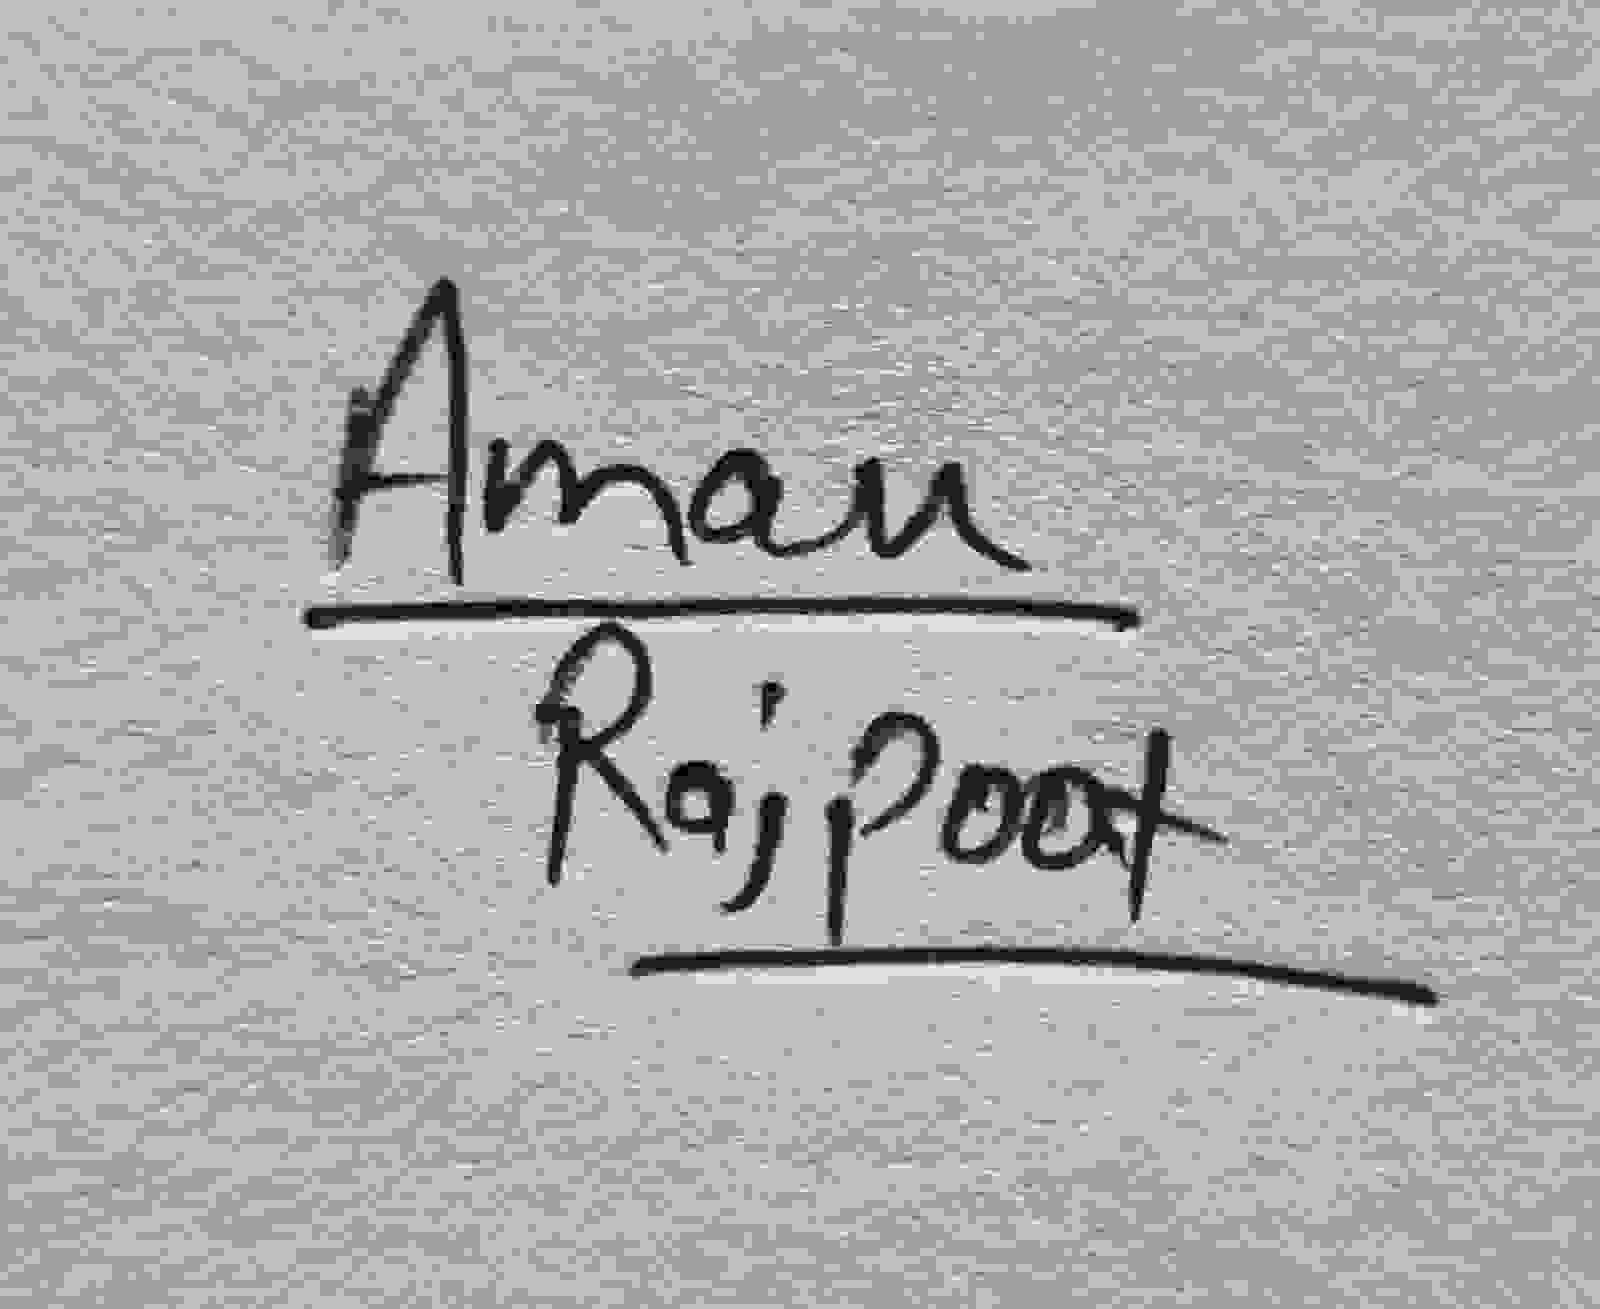 Aman
Rajpoot